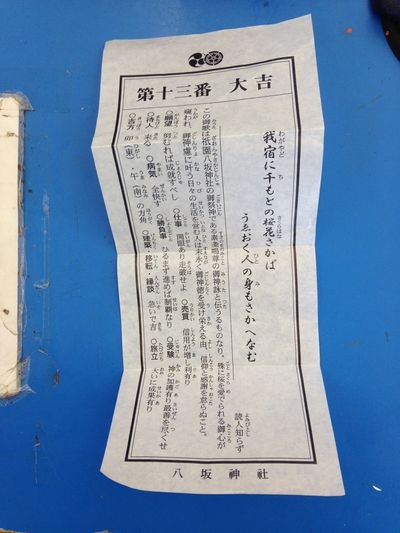 第十三番 大吉
我宿に千もとの桜花さかば
うゑおく人の身もさかへなむ
読人知らず
この御歌は祇園八坂神社の御祭神である素戔嗚尊の御神詠と伝うるものなり。殊に桜を愛でられる御心が
窺われ、御神慮に叶う日々の生活を営む人は末永く御神徳を受け栄える由、信仰と感謝を怠らぬこと。
○願望 努むれば成就すべし ○仕事 問題あり走破せよ ○売買 信用が増し利有り
○待人 来る ○病気 全快す ○勝負事 ひるまず進めば制覇なり ○受験 神の加護有り最善を尽くせ
○吉方 卯(東)・午(南)の方角 ○建築・移転・縁談 急いで吉 ○旅立 大いに成果有り
八坂神社